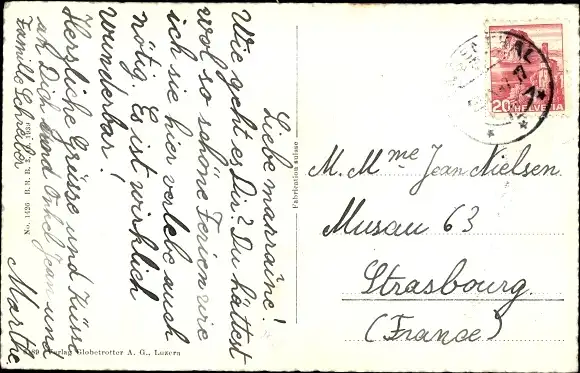 Liebe marraine!
Wie geht es Dir? Du hättest
wol so schöne Ferien wie
ich sie hier verlebe auch
nötig. Es ist wirklich
wunderbar!
Herzliche Grüsse und Küsse
an Dich und Onkel Jean und
Familie
Marthe.
No. 1426 B.R.B.
Verlag Globetrotter A. G., Luzern
Fabrication suisse
20 HELVETIA
M. Mme Jean Nielsen
Musau 63
Strasbourg.
(France)